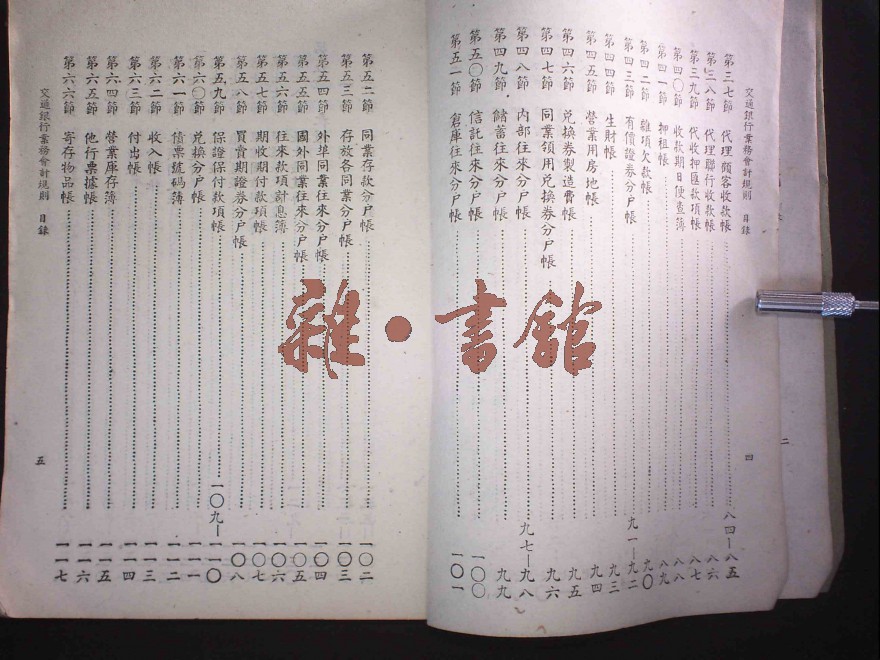 交通銀行業務會計規則 目錄 四
第三七節 代理顧客收款帳 八四—八五
第三八節 代理聯行收款帳 八六
第三九節 代收押匯款項帳 八七
第四〇節 收款期日便查簿 八八
第四一節 押租帳 八九
第四二節 雜項欠款帳 九〇
第四三節 有價證券分戶帳 九一—九二
第四四節 生財帳 九三
第四五節 營業用房地帳 九四
第四六節 兌換券製造費帳 九五
第四七節 同業領用兌換券分戶帳 九六
第四八節 內部往來分戶帳 九七—九八
第四九節 儲蓄往來分戶帳 九九
第五〇節 信託往來分戶帳 一〇〇
第五一節 倉庫往來分戶帳 一〇一
第五二節 同業存款分戶帳 一〇二
第五三節 存放各同業分戶帳 一〇三
第五四節 外埠同業往來分戶帳 一〇四
第五五節 國外同業往來分戶帳 一〇五
第五六節 往來款項計息簿 一〇六
第五七節 期收期付款項帳 一〇七
第五八節 買賣期證券分戶帳 一〇八
第五九節 保證保付款項帳 一〇九—一一〇
第六〇節 兌換分戶帳 一一一
第六一節 債票號碼簿 一一二
第六二節 收入帳 一一三
第六三節 付出帳 一一四
第六四節 營業庫存簿 一一五
第六五節 他行票據帳 一一六
第六六節 寄存物品帳 一一七
交通銀行業務會計規則 目錄 五
雜·書館
二